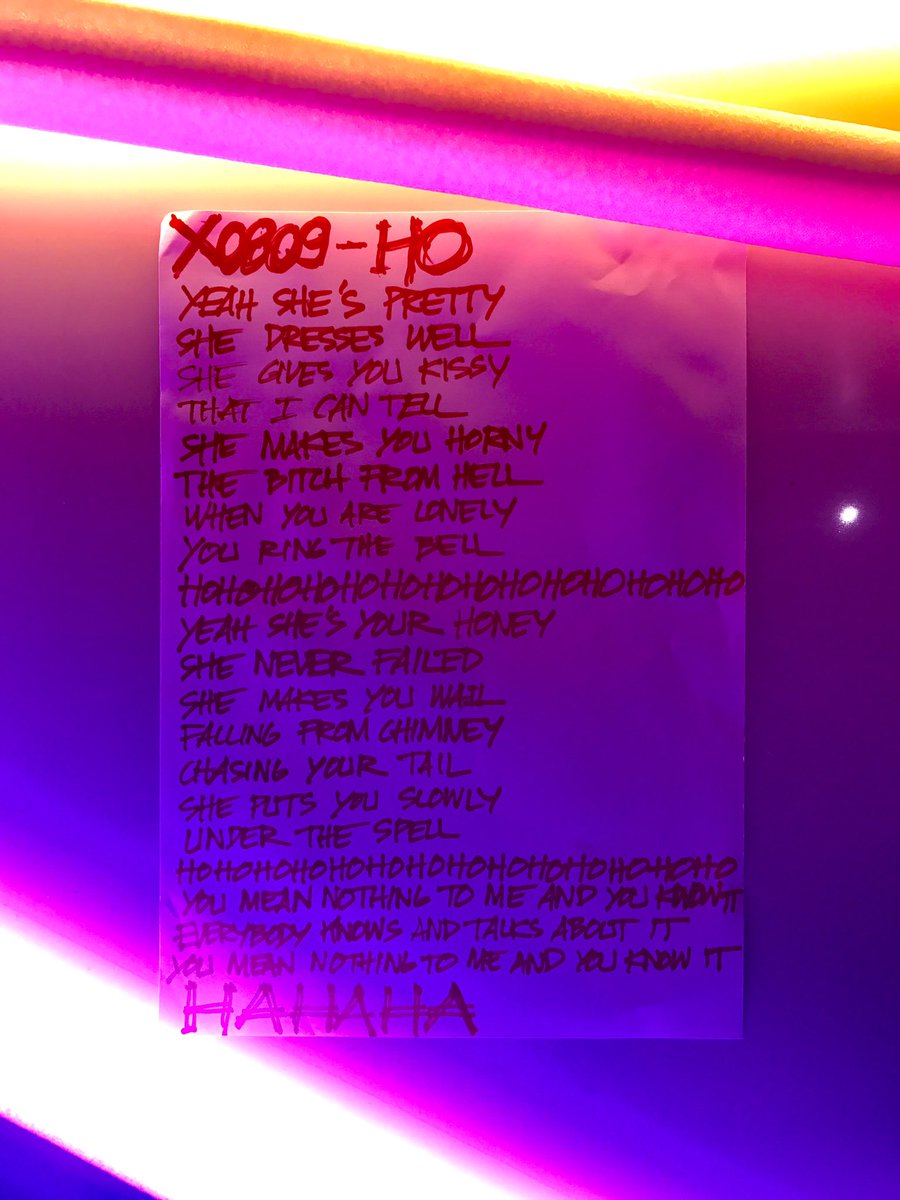 X0809-HO
YEAH SHE'S PRETTY
SHE DRESSES WELL
SHE GIVES YOU KISSY
THAT I CAN TELL
SHE MAKES YOU HORNY
THE BITCH FROM HELL
WHEN YOU ARE LONELY
YOU RING THE BELL
HOHOHOHOHOHOHOHOHOHOHOHOHOHO
YEAH SHE'S YOUR HONEY
SHE NEVER FAILED
SHE MAKES YOU WAIL
FALLING FROM CHIMNEY
CHASING YOUR TAIL
SHE PUTS YOU SLOWLY
UNDER THE SPELL
HOHOHOHOHOHOHOHOHOHOHOHOHOHO
YOU MEAN NOTHING TO ME AND YOU KNOW IT
EVERYBODY KNOWS AND TALKS ABOUT IT
YOU MEAN NOTHING TO ME AND YOU KNOW IT
HAHAHA